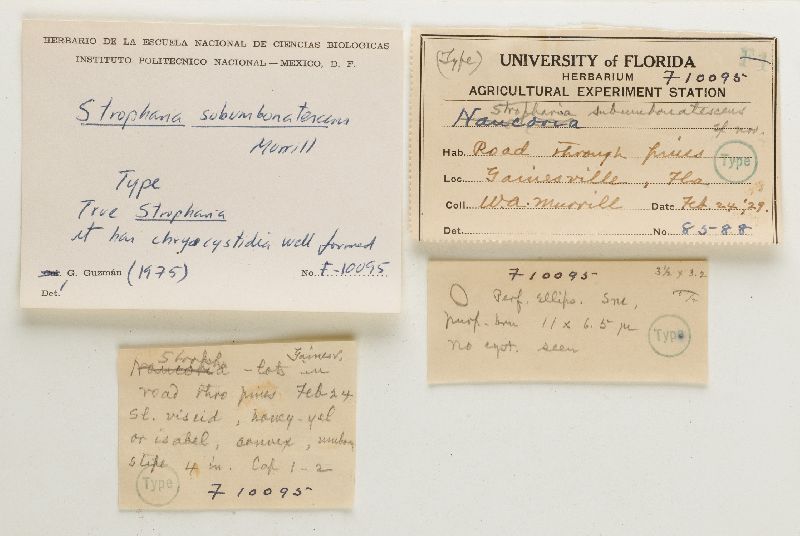 HERBARIO DE LA ESCUELA NACIONAL DE CIENCIAS BIOLOGICAS
INSTITUTO POLITECNICO NACIONAL—MEXICO, D. F.
Stropharia subumbonatescens
Murrill
Type
True Stropharia
it has chrysocystidia well formed
G. Guzmán (1975) No. F-10095
Det.
(Type) UNIVERSITY of FLORIDA
HERBARIUM F 10095
AGRICULTURAL EXPERIMENT STATION
Stropharia subumbonatescens
Naucoria sp. nov.
Hab. Road through pines Type
Loc. Gainesville, Fla
Coll. W.A. Murrill Date Feb. 24, '29.
Det. No. 8588
F 10095 3½ x 3.2
Perf. ellips. sme,
purp-brn 11 x 6.5 µ
no cyst. seen
Type
Stroph. Gainesv.
Naucoria - lots in
road thro pines Feb 24
St. viscid, honey-yel
or isabel, convex, umbon,
stipe 4 in. Cap 1-2
Type
F 10095